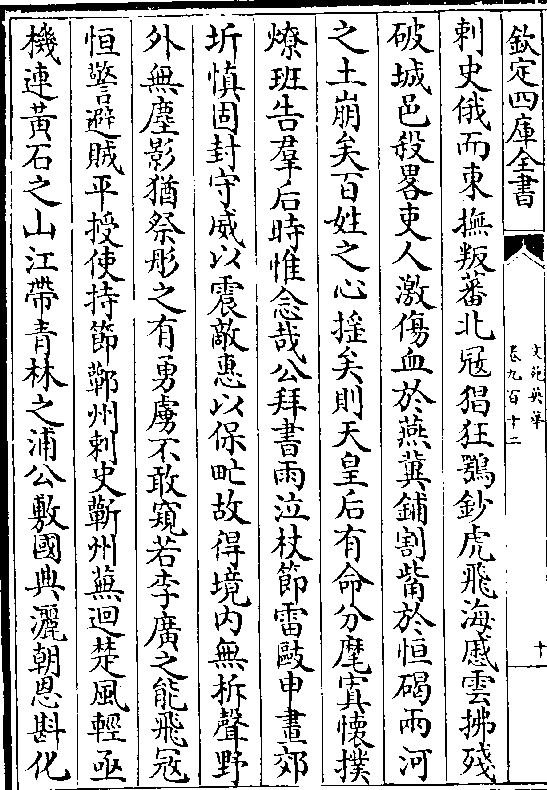 欽定四庫全書
文苑英華
卷九百十二
十
刺史俄而東撫叛蕃北冦猖狂鶚鈔虎飛海慼雲拂殘
破城邑殺畧吏人激傷血於燕冀鋪割胔於恒碣兩河
之土崩矣百姓之心揺矣則天皇后有命分麾寘懷撲
燎班告羣后時惟念哉公拜書雨泣杖節雷敺申畫郊
圻慎固封守威以震敵惠以保甿故得境内無柝聲野
外無塵影猶祭彤之有勇虜不敢窺若李廣之能飛冦
恒警避賊平授使持節鄿州刺史蘄州蕪迴楚風輕亟
機連黄石之山江帶青林之浦公敷國典灑朝恩斟化